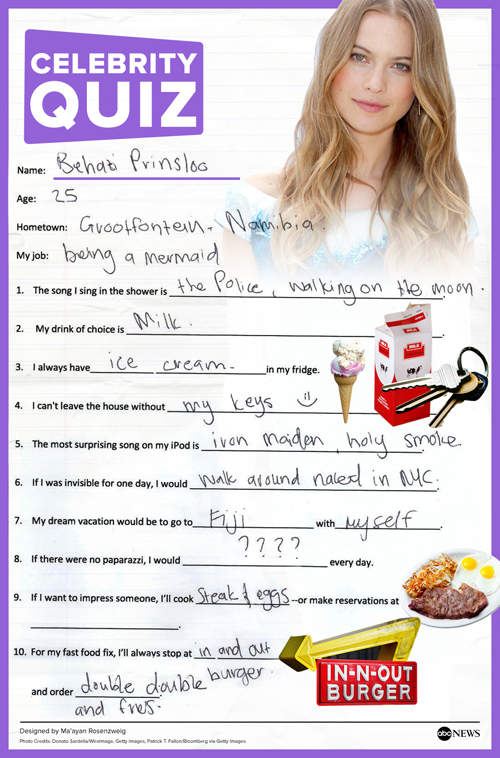 CELEBRITY
QUIZ
Name: Behati Prinsloo
Age: 25
Hometown: Grootfontein, Namibia.
My job: being a mermaid
1. The song I sing in the shower is the Police, walking on the moon.
2. My drink of choice is Milk.
3. I always have ice cream in my fridge.
4. I can't leave the house without my keys
5. The most surprising song on my iPod is iron maiden, holy smoke
6. If I was invisible for one day, I would walk around naked in NYC.
7. My dream vacation would be to go to Fiji with myself.
8. If there were no paparazzi, I would ???? every day.
9. If I want to impress someone, I'll cook Steak & eggs --or make reservations at
10. For my fast food fix, I'll always stop at in and out
burger.
and order double double
and fries.
MILK
MILK
IN-N-OUT
BURGER
Designed by Ma'ayan Rosenzweig
Photo Credits: Donato Sardella/WireImage, Getty Images, Patrick T. Fallon/Bloomberg via Getty Images
abc NEWS